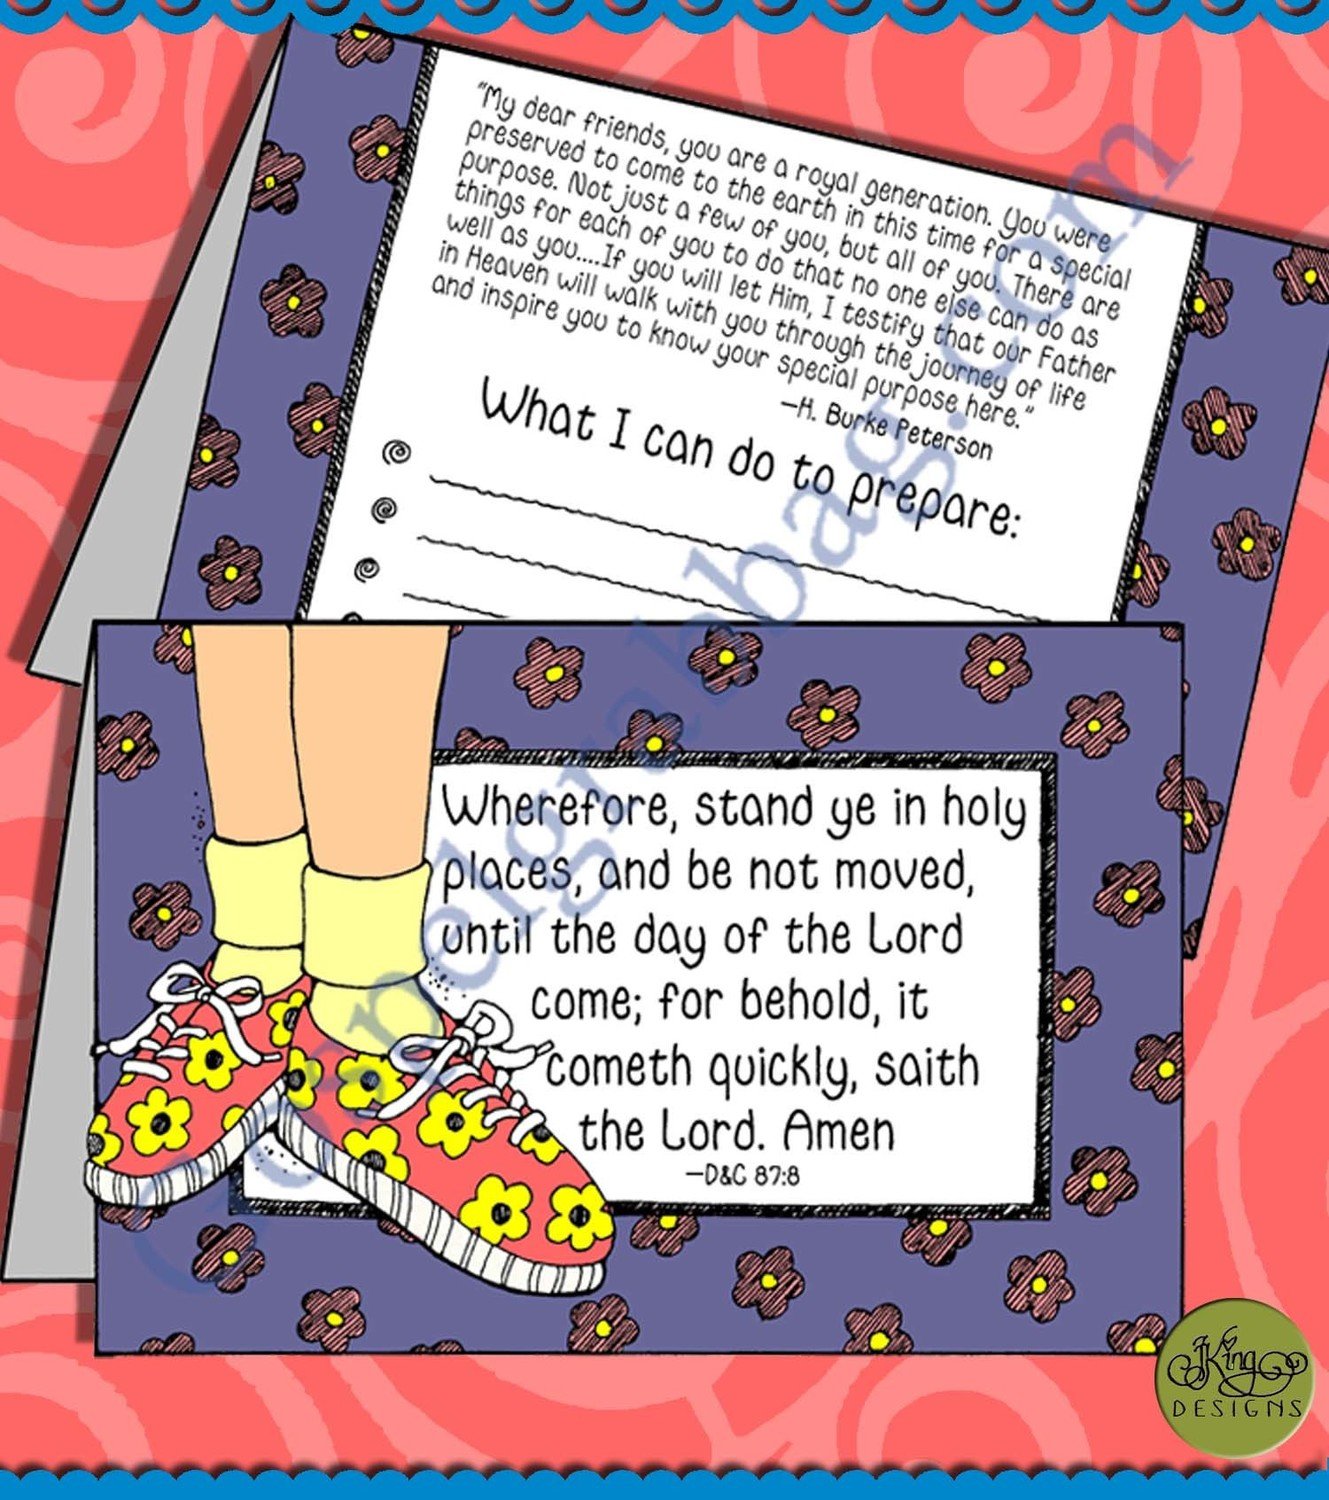 "My dear friends, you are a royal generation. You were
preserved to come to the earth in this time for a special
purpose. Not just a few of you, but all of you. There are
things for each of you to do that no one else can do as
well as you....If you will let Him, I testify that our Father
in Heaven will walk with you through the journey of life
and inspire you to know your special purpose here."
—H. Burke Peterson
What I can do to prepare:
Wherefore, stand ye in holy
places, and be not moved,
until the day of the Lord
come; for behold, it
cometh quickly, saith
the Lord. Amen
—D&C 87:8
Gospelgrabbag.com
JKing
DESIGNS